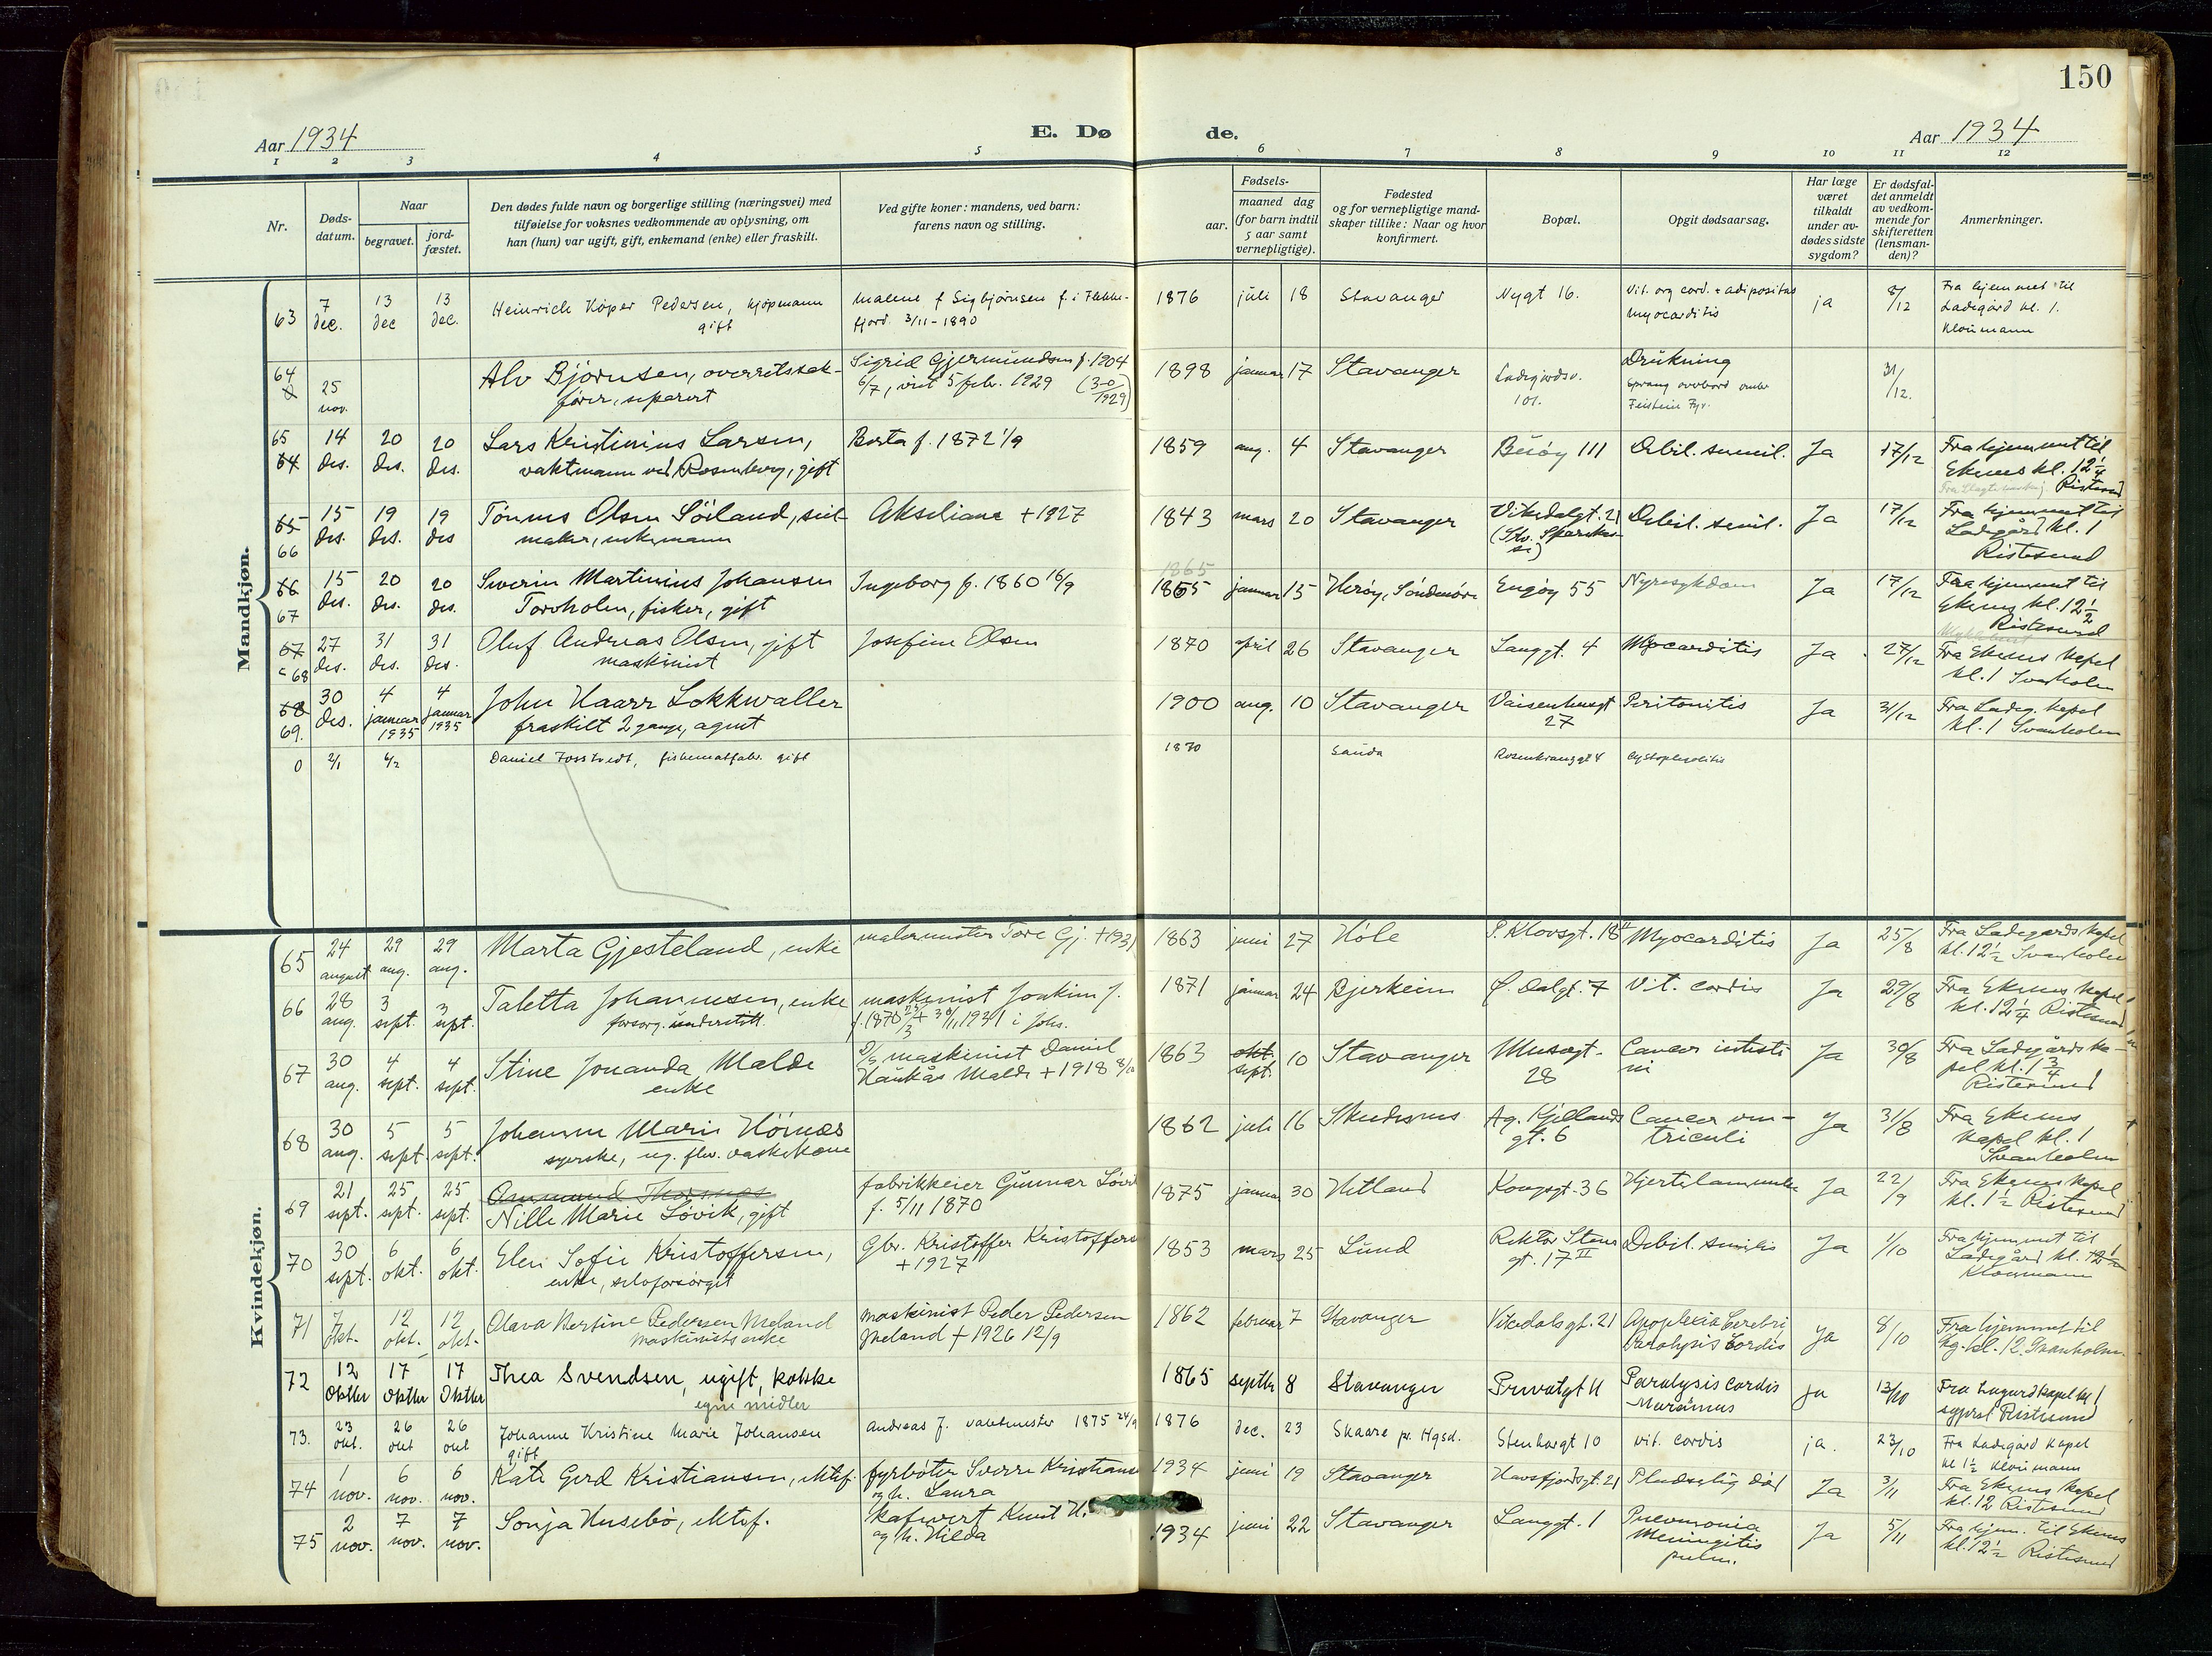 150
Aar 1934
E. Dø
de.
Aar 1934
1 2 3 4 5 6 7 8 9 10 11 12
Nr.
Døds-
datum.
Naar
begravet.
jord-
fæstet.
Den dødes fulde navn og borgerlige stilling (næringsvei) med
tilføielse for voksnes vedkommende av oplysning, om
han (hun) var ugift, gift, enkemand (enke) eller fraskilt.
Ved gifte koner: mandens, ved barn:
farens navn og stilling.
Fødsels-
aar.
maaned dag
(for barn indtil
5 aar samt
vernepligtige).
Fødested
og for vernepligtige mand-
skaper tillike: Naar og hvor
konfirmert.
Bopæl.
Opgit dødsaarsag.
Har læge
været
tilkaldt
under av-
dødes sidste
sygdom?
Er dødsfal-
det anmeldt
av vedkom-
mende for
skifteretten
(lensman-
den)?
Anmerkninger.
Mandkjøn.
63 7 dec. 13 dec 13 dec. Heinrich Köper Pedersen, kjøpmann
gift
Malene f Sigbjørnsen f. i Flekke-
fjord. 3/11-1890
1876 juli 18 Stavanger Nygt 16. Vit. org cord. + adipositas
Myocarditis
ja 8/12 Fra hjemmet til
Ladegård kl. 1.
Kloumann
64 25 nov. Alv Bjørnsen, overrettssak-
fører, separert
Sigrid Gjermundsen f. 1904
6/7, viet 5 febr. 1929
1898 januar 17 Stavanger Ladegårdsv.
101.
Drukning
Sprang overbord
Feistein Fyr.
31/12.
65 64 14 des. 20 des. 20 des. Lars Kristinius Larsen,
vaktmann ved Rosenberg, gift
Berta f. 1872 1/9
1859 aug. 4 Stavanger Buøy 111 Debil. senil. Ja 17/12 Fra hjemmet til
Ekenes kl. 12 1/4
Ristesund
65 66 15 des. 19 des. 19 des Tønnes Olsen Søiland, seil-
maker, enkemann
Akseliane + 1927
1843 mars 20 Stavanger Vikedalgt. 21
Debil. senil. Ja 17/12 Fra hjemmet til
Ladegård kl. 1
Ristesund
66 67 15 des. 20 des. 20 des. Severin Martinius Johansen
Torvholen, fisker, gift
Ingeborg f. 1860 16/9
1865
1865 januar 15 Herøy, Søndmøre Engøy 55 Nyresykdom Ja 17/12 Fra hjemmet til
Ekenes kl. 12 1/2
Ristesund
67 68 27 des. 31 des. 31 des. Oluf Andreas Olsen, gift
maskinist
Josefine Olsen
1870 april 26 Stavanger Langgt. 4 Myocarditis Ja 27/12 Fra Ekenes kapel
kl. 1 Svanholm
68 69. 30 des. 4 januar 1935 4 januar 1935 John Haarr Lokkwaller
fraskilt 2 gange, agent
1900 aug. 10 Stavanger Vaisenhusgt
27
Peritonitis Ja 31/12 Fra Ladeg. kapel
kl. 1 Svanholm
0 2/1 4/2 Daniel Fosstvedt, fiskematfabr. gift
1870 Sauda Rosenkranzgt 4
Kvindekjøn.
65 24 august 29 aug. 29 aug. Marta Gjesteland, enke
malermester Tore Gj. +1931
1863 juni 27 Høle P. Klovsgt. 18 II Myocarditis Ja 25/8 Fra Ladegårds kapel
kl. 12 1/2 Svanholm
66 28 aug. 3 sept. 3 sept. Taletta Johannesen, enke
forsorg. understøtt.
maskinist Joakim J.
1871 januar 24 Bjerkeim Ø. Dalgt. 7 Vit. cordis Ja 29/8 Fra Ekenes kapel
kl. 12 1/4 Ristesund
67 30 aug. 4 sept. 4 sept. Stine Jonanda Malde
enke
maskinist Daniel
Haukås Malde + 1918
1863 okt. sept. 10 Stavanger Musegt.
28
Cancer intesti-
ni
Ja 30/8 Fra Ladegårds ka-
pel kl. 1 3/4
Ristesund
68 30 aug. 5 sept. 5 sept. Johanne Marie Hörnæs
syerske, ug. flv. vaskekone
1862 juli 16 Skudenes Ag. Kjellands
gt. 6
Cancer ven-
triculi
Ja 31/8 Fra Ekenes
kapel kl. 1
Svanholm
69 21 sept. 25 sept. 25 sept. Ommund Thorsnes
Nille Marie Løvik, gift
fabrikkeier Gunnar Løvik
f. 5/11 1870
1875 januar 30 Hetland Kongsgt. 36 Hjertelammelse Ja 22/9 Fra Ekenes kapel
kl. 1 1/2 Ristesund
70 30 sept. 6 okt. 6 okt. Elen Sofie Kristoffersen,
enke, selvforsørget
Gbr. Kristoffer Kristoffers
+ 1927
1853 mars 25 Lund Rektor Stens
gt. 17 II
Debil. senilis Ja 1/10 Fra hjemmet til
Ladegård kl. 12 1/2
Kloumann
71 7 okt. 12 okt. 12 okt. Olava Bertine Pedersen Meland
maskinists enke
maskinist Peder Pedersen
Meland + 1926 12/9
1862 februar 7 Stavanger Vikedalsgt. 21 Apoplexia Cerebri
Paralysis Cordis
Ja 8/10 Fra hjemmet til
kl. 12. Svanholm.
72 12 Oktbr 17 Oktbr 17 Oktbr Thea Svendsen, ugift, kokke
egne midler
1865 septbr 8 Stavanger Privatgt 11 Paralysis cordis
Marasmus
ja 13/10 Fra Lagård kapel kl 1
Ristesund
73. 23 okt. 26 okt 26 okt Johanne Kristine Marie Johansen
gift
Andreas J. vaktmester 1875 24/9
1876 dec. 23 Skaare pr. Hgsd. Stenhargt 10 vit. cordis ja. 23/10 Fra Ladegård kapel
kl 1 1/2 Kloumann
74 1 nov. 6 nov. 6 nov. Kate Gerd Kristiansen, ektef.
fyrbøter Sverre Kristians
og h. Laura
1934 juni 19 Stavanger Havsfjordsgt. 21 Pludselig død Ja 3/11 Fra Ekenes kapel
kl. 12 Ristesund
75 2 nov. 7 nov. 7 nov. Sonja Husebø, ektef.
Knut H.
og h. Hilda
1934 juni 22 Stavanger Langgt. 1 Pneumonia
Meningitis
pulm.
Ja 5/11 Fra hjem. til Ekenes
kl. 12 1/2 Ristesund